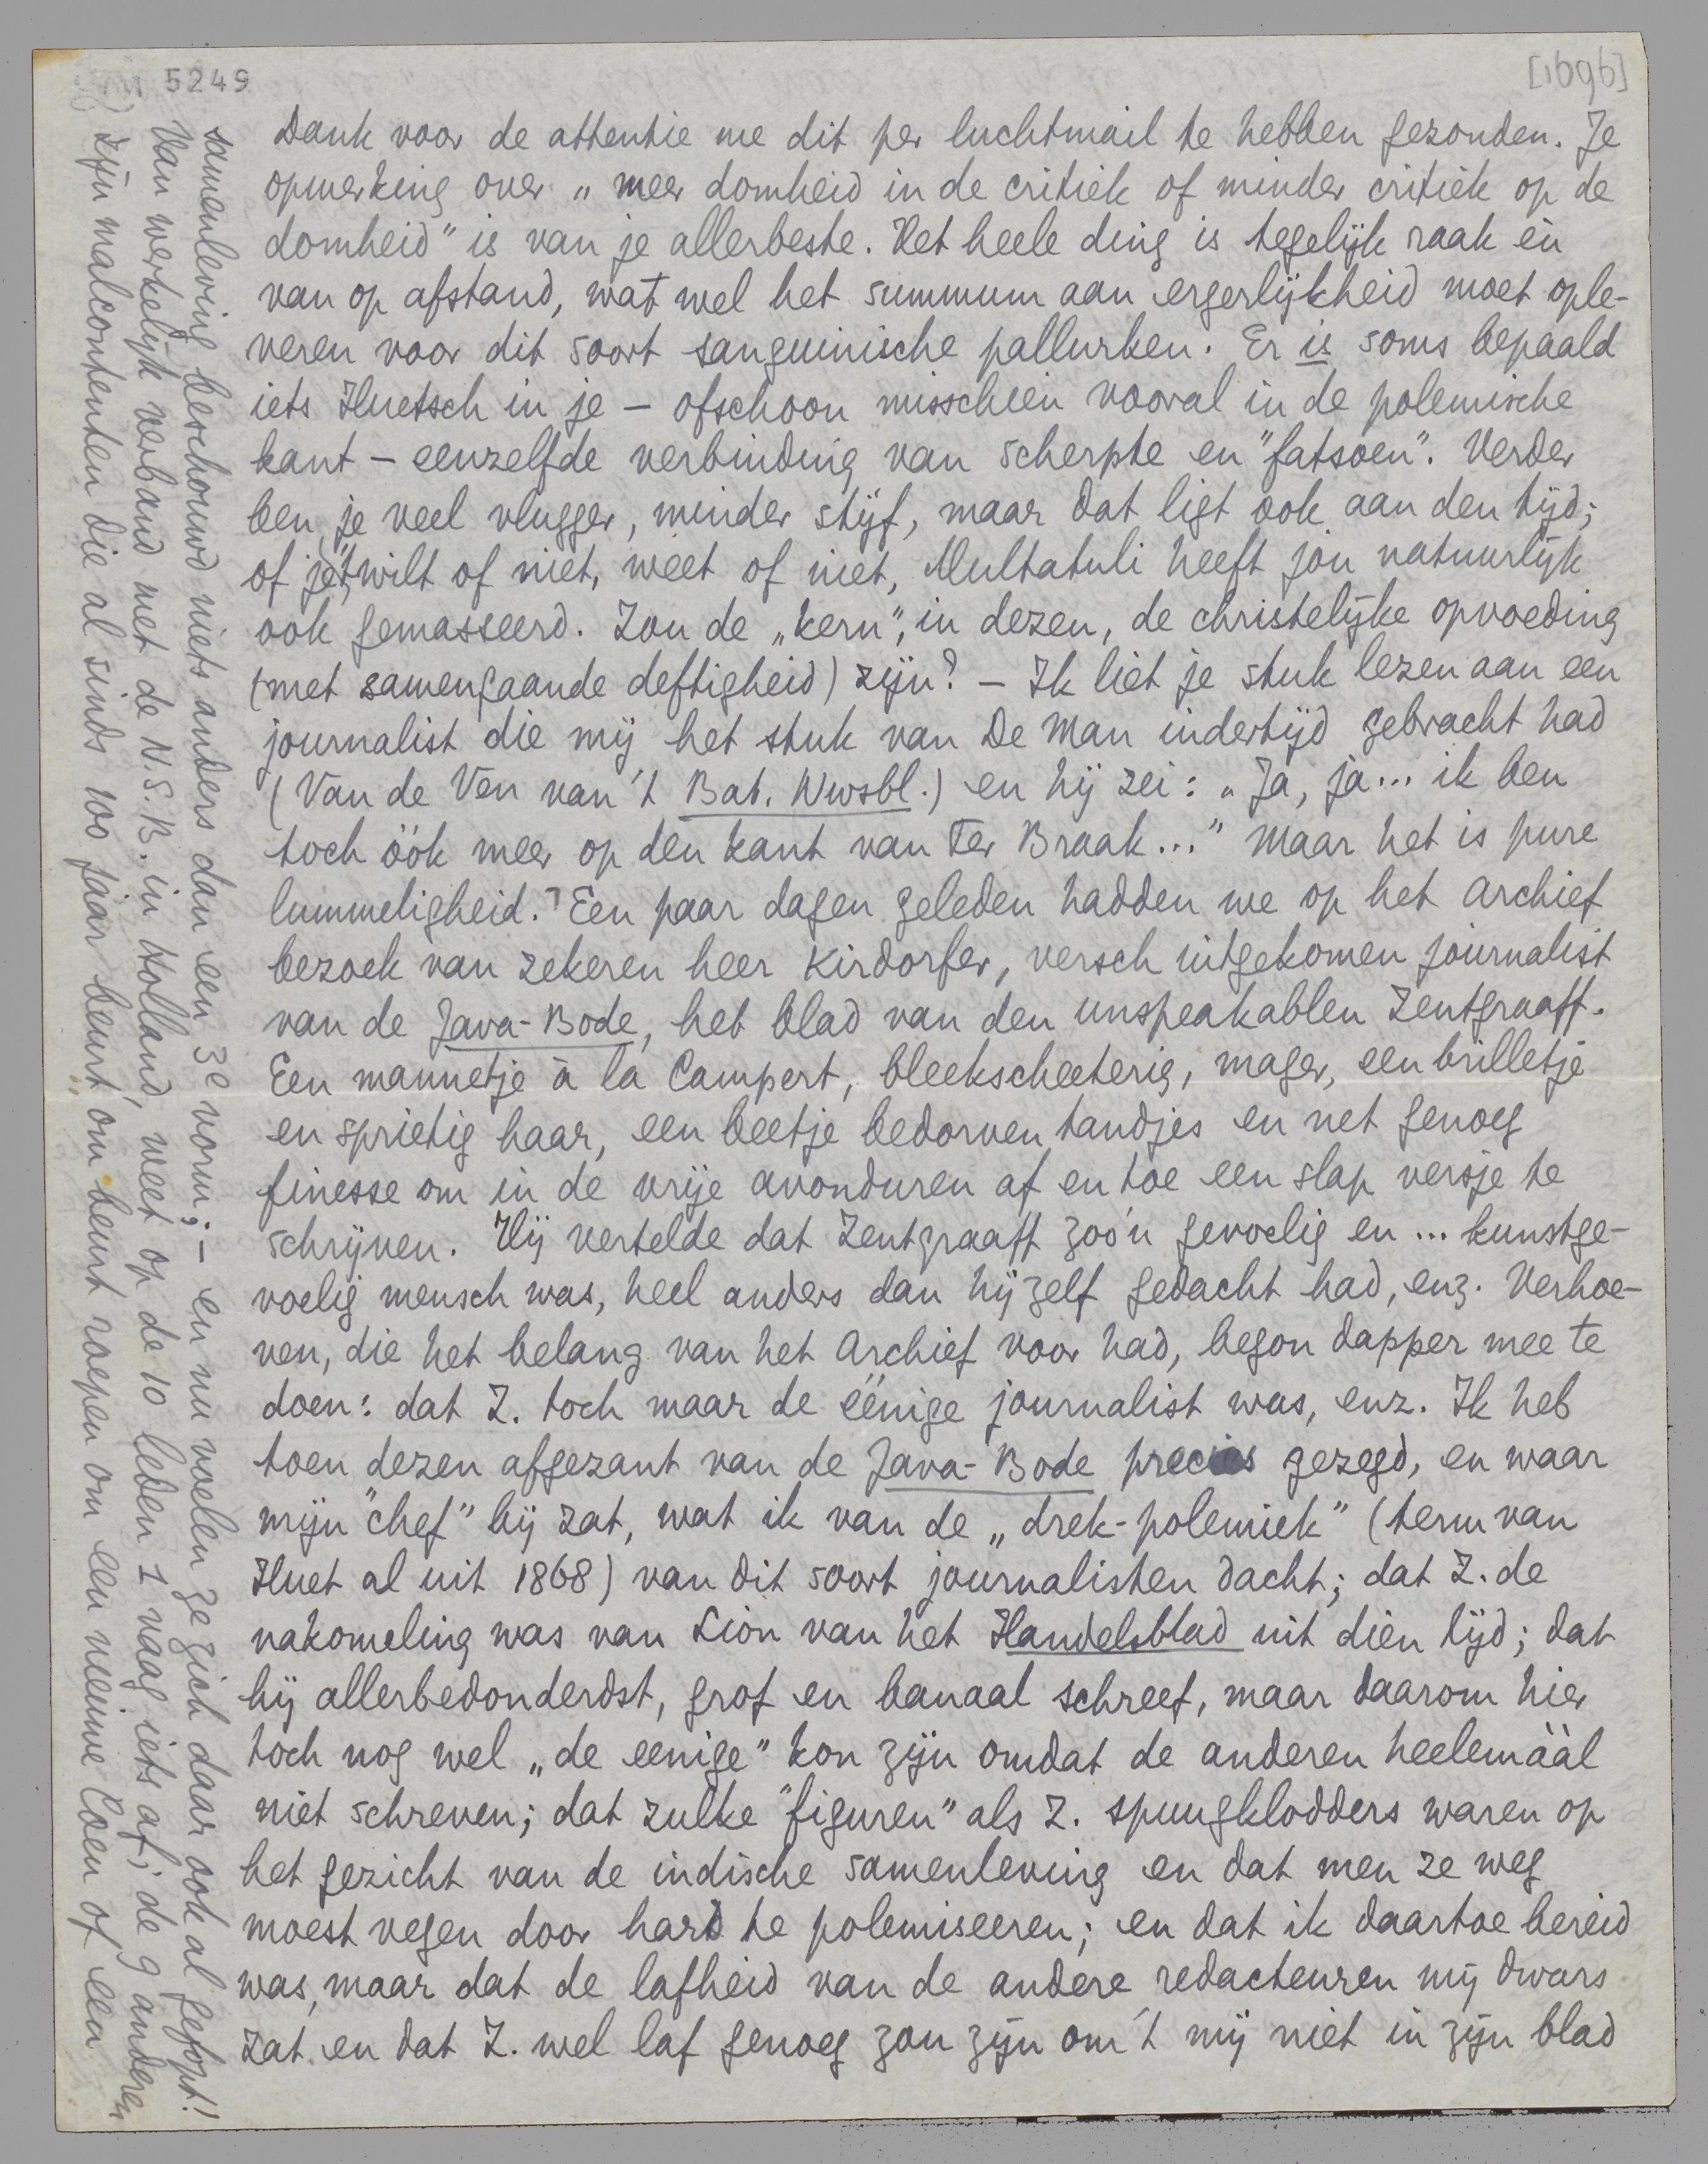 5249
[1696]
Dank voor de attentie me dit per luchtmail te hebben gezonden. Je
opmerking over „meer domheid in de critiek of minder critiek op de
domheid” is van je allerbeste. Het heele ding is tegelijk raak èn
van op afstand, wat wel het summum aan ergerlijkheid moet ople-
veren voor dit soort sanguinische pallurken. Er is soms bepaald
iets Huetsch in je – ofschoon misschien vooral in de polemische
kant – eenzelfde verbinding van scherpte en "fatsoen". Verder
ben je veel vlugger, minder stijf, maar dat ligt ook aan den tijd;
of je 't wilt of niet, weet of niet, Multatuli heeft jou natuurlijk
ook gemasseerd. Zou de „kern”, in dezen, de christelijke opvoeding
(met samengaande deftigheid) zijn? – Ik liet je stuk lezen aan een
journalist die mij het stuk van De Man indertijd gebracht had
(Van de Ven van 't Bat. Nwsbl.) en hij zei: „Ja, ja... ik ben
toch óók meer op den kant van Ter Braak...” Maar het is pure
lummeligheid. Een paar dagen geleden hadden we op het Archief
bezoek van zekeren heer Kirdorfer, versch uitgekomen journalist
van de Java-Bode, het blad van den unspeakablen Zentgraaff.
Een mannetje à la Campert, bleekscheeterig, mager, een brilletje
en sprietig haar, een beetje bedorven tandjes en net genoeg
finesse om in de vrije avonduren af en toe een slap versje te
schrijven. Hij vertelde dat Zentgraaff zoo'n gevoelig en ... kunstge-
voelig mensch was, heel anders dan hij zelf gedacht had, enz. Verhoe-
ven, die het belang van het Archief voor had, begon dapper mee te
doen: dat Z. toch maar de éénige journalist was, enz. Ik heb
toen dezen afgezant van de Java-Bode precies gezegd, en waar
mijn "chef" bij zat, wat ik van de „drek-polemiek” (term van
Huet al uit 1868) van dit soort journalisten dacht; dat Z. de
nakomeling was van Lion van het Handelsblad uit dien tijd; dat
hij allerbedonderdst, grof en banaal schreef, maar daarom hier
toch nog wel „de eenige” kon zijn omdat de anderen heelemáál
niet schreven; dat zulke "figuren" als Z. spuugklodders waren op
het gezicht van de indische samenleving en dat men ze weg
moest vegen door hard te polemiseeren; en dat ik daartoe bereid
was, maar dat de lafheid van de andere redacteuren mij dwars
zat en dat Z. wel laf genoeg zou zijn om 't mij niet in zijn blad
samenleving beschouwd niets anders dan een 3e vorm; – en nu voelen ze zich daar ook al gefopt!!
Van werkelijk verband met de N.S.B. in Holland, weet op de 10 leden 1 vaag iets af; de 9 anderen
zijn malcontenten die al sinds 100 jaar beurt om beurt roepen om een nieuwe Coen of een